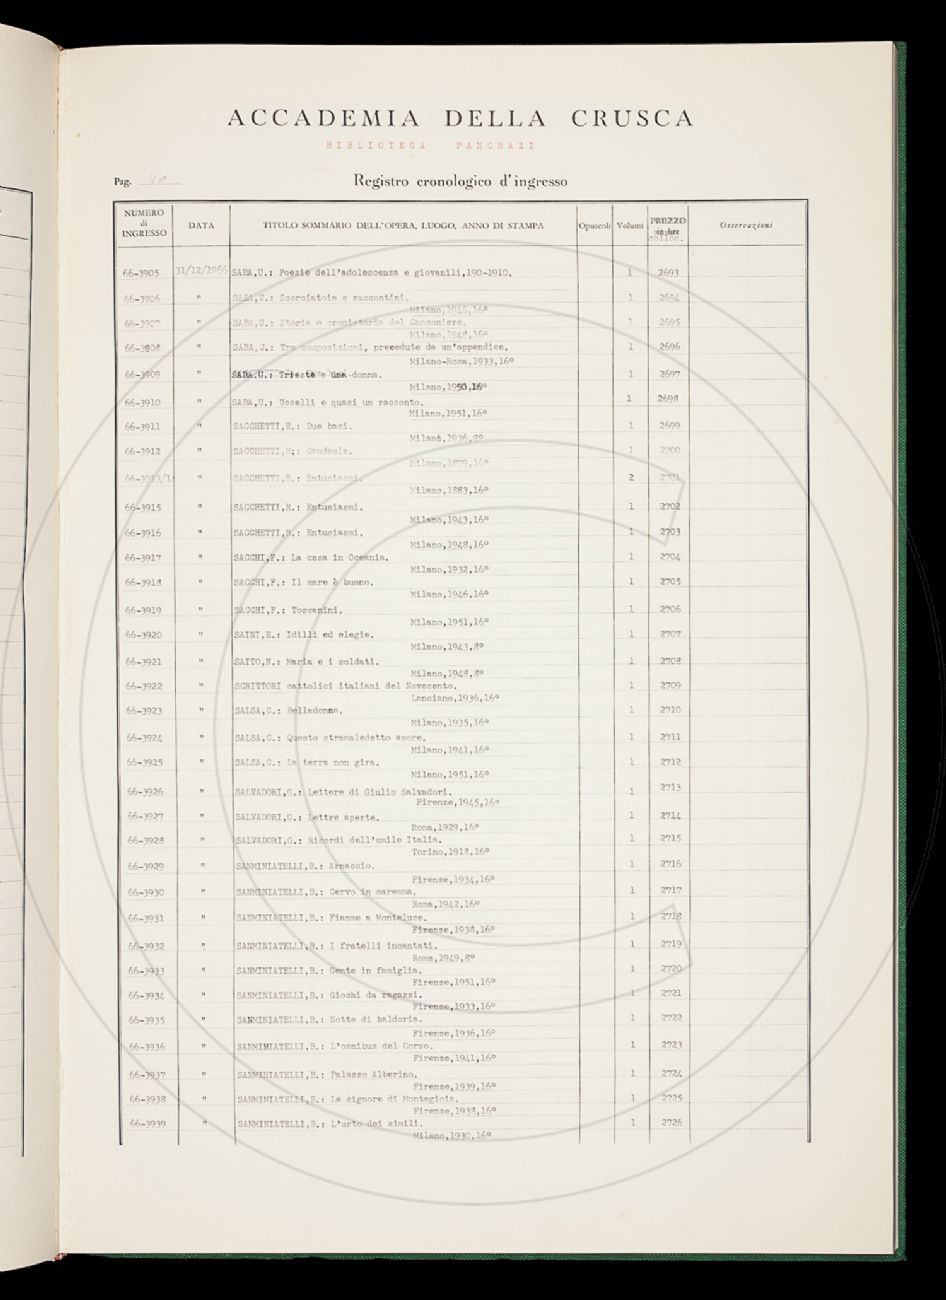 ACCADEMIA DELLA CRUSCA
BIBLIOTECA PANCRAZI
Pag.
Registro cronologico d'ingresso
NUMERO di INGRESSO DATA TITOLO SOMMARIO DELL'OPERA, LUOGO, ANNO DI STAMPA Opuscoli Volumi PREZZO colloc. Osservazioni
66-3905 31/12/1966 SABA,U.: Poesie dell'adolescenza e giovanili,190-1910. 1 2693
66-3906 " SABA,U.: Scorciatoie e raccontini. 1 2694
Milano,1946,16°
66-3907 " SABA,U.: Storia e cronistoria del Canzoniere. 1 2695
Milano,1948,16°
66-3908 " SABA,U.: Tre composizioni, precedute da un'appendice. 1 2696
Milano-Roma,1933,16°
66-3909 " SABA.U.: Trieste e una donna. 1 2697
Milano,1950,16°
66-3910 " SABA,U.: Uccelli e quasi un racconto. 1 2698
Milano,1951,16°
66-3911 " SACCHETTI,E.: Due baci. 1 2699
Milano,1936,8°
66-3912 " SACCHETTI,R.: Candaule. 1 2700
Milano,1879,16°
66-3913/1 " SACCHETTI,R.: Entusiasmi. 2 2701
Milano,1883,16°
66-3915 " SACCHETTI,R.: Entusiasmi. 1 2702
Milano,1943,16°
66-3916 " SACCHETTI,R.: Entusiasmi. 1 2703
Milano,1948,16°
66-3917 " SACCHI,F.: La casa in Oceania. 1 2704
Milano,1932,16°
66-3918 " SACCHI,F.: Il mare è buono. 1 2705
Milano,1946,16°
66-3919 " SACCHI,F.: Toscanini. 1 2706
Milano,1951,16°
66-3920 " SAINI,E.: Idilli ed elegie. 1 2707
Milano,1943,8°
66-3921 " SAITO,N.: Maria e i soldati. 1 2708
Milano,1948,8°
66-3922 " SCRITTORI cattolici italiani del Novecento. 1 2709
Lanciano,1936,16°
66-3923 " SALSA,C.: Belladonna. 1 2710
Milano,1935,16°
66-3924 " SALSA,C.: Questo stramaledetto amore. 1 2711
Milano,1941,16°
66-3925 " SALSA,C.: La terra non gira. 1 2712
Milano,1951,16°
66-3926 " SALVADORI,G.: Lettere di Giulio Salvadori. 1 2713
Firenze,1945,16°
66-3927 " SALVADORI,G.: Lettre aperte. 1 2714
Roma,1929,16°
66-3928 " SALVADORI,G.: Ricordi dell'umile Italia. 1 2715
Torino,1918,16°
66-3929 " SANMINIATELLI,B.: Arnaccio. 1 2716
Firenze,1934,16°
66-3930 " SANMINIATELLI,B.: Cervo in maremma. 1 2717
Roma,1942,16°
66-3931 " SANMINIATELLI,B.: Fiamme a Monteluce. 1 2718
Firenze,1938,16°
66-3932 " SANMINIATELLI,B.: I fratelli incantati. 1 2719
Roma,1949,8°
66-3933 " SANMINIATELLI,B.: Gente in famiglia. 1 2720
Firenze,1951,16°
66-3934 " SANMINIATELLI,B.: Giochi da ragazzi. 1 2721
Firenze,1933,16°
66-3935 " SANMINIATELLI,B.: Notte di baldoria. 1 2722
Firenze,1936,16°
66-3936 " SANMINIATELLI,B.: L'omnibus del Corso. 1 2723
Firenze,1941,16°
66-3937 " SANMINIATELLI,B.: Palazzo Alberino. 1 2724
Firenze,1939,16°
66-3938 " SANMINIATELLI,B.: Le signore di Montegioia. 1 2725
Firenze,1938,16°
66-3939 " SANMINIATELLI,B.: L'urto dei simili. 1 2726
Milano,1930,16°